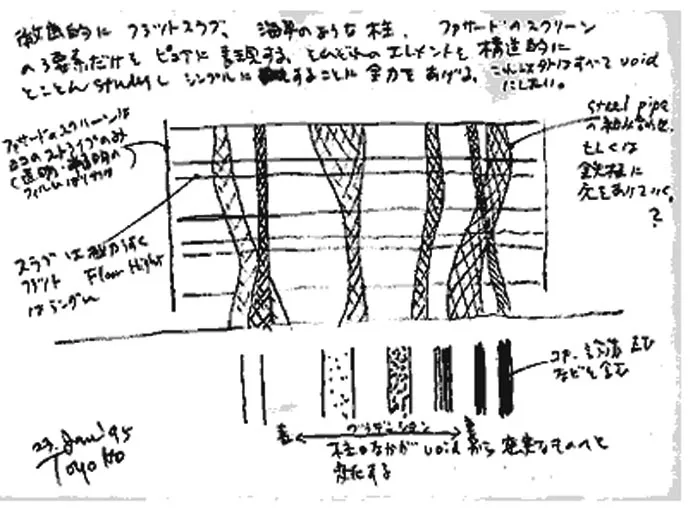 徹底的に フラットスラブ、 海草のような柱、 ファサードのスクリーン
の3要素だけを ピュアに 表現する。それぞれのエレメントを 構造的に
とことん studyし シンプルに することに 全力を あげる。これ以外はすべて void
にしたい。
ファサードのスクリーンは
ヨコのストライプのみ
フィルム
スラブは 極力うすく
フラット Floor Hight
はランダム
steel pipe
の組み合わせ、
もしくは
鉄板に
穴をあけていく。
?
コア・
なども含む
グラデーション
柱のなかが void から 充実なものへと
変化する
23. Jan. '95
Toyo Ito